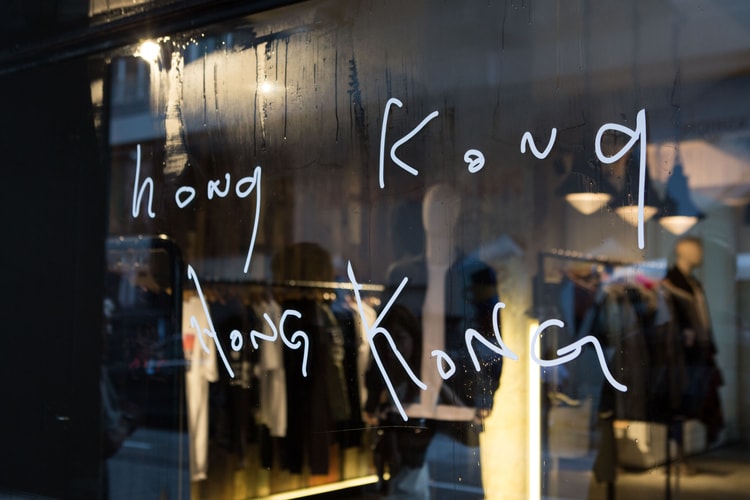 hong Kong
HONG KONG